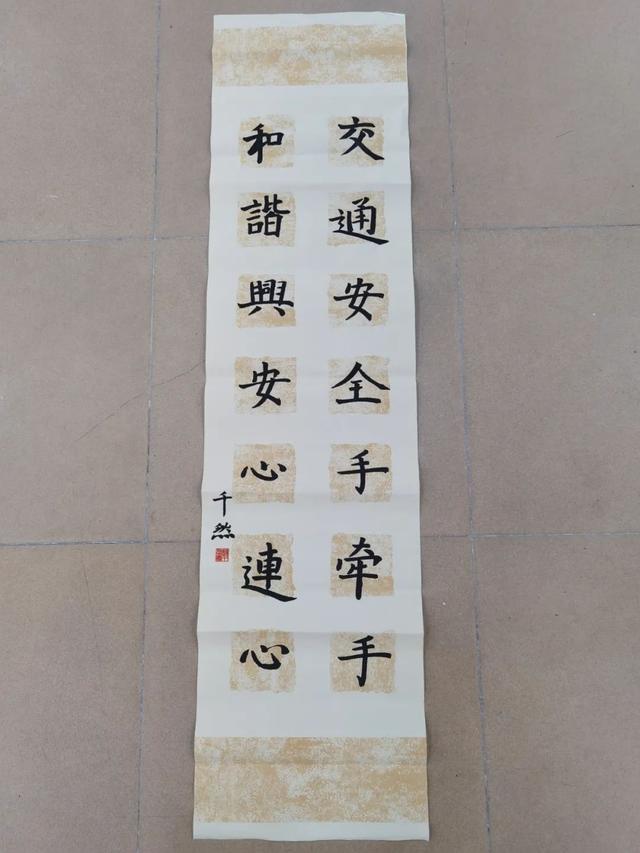 交通安全手牽手
和諧興安心連心
千然